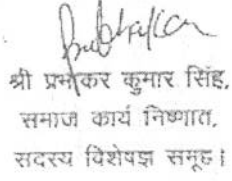 श्री प्रभाकर कुमार सिंह,
समाज कार्य निष्णात,
सदस्य विशेषज्ञ समूह।